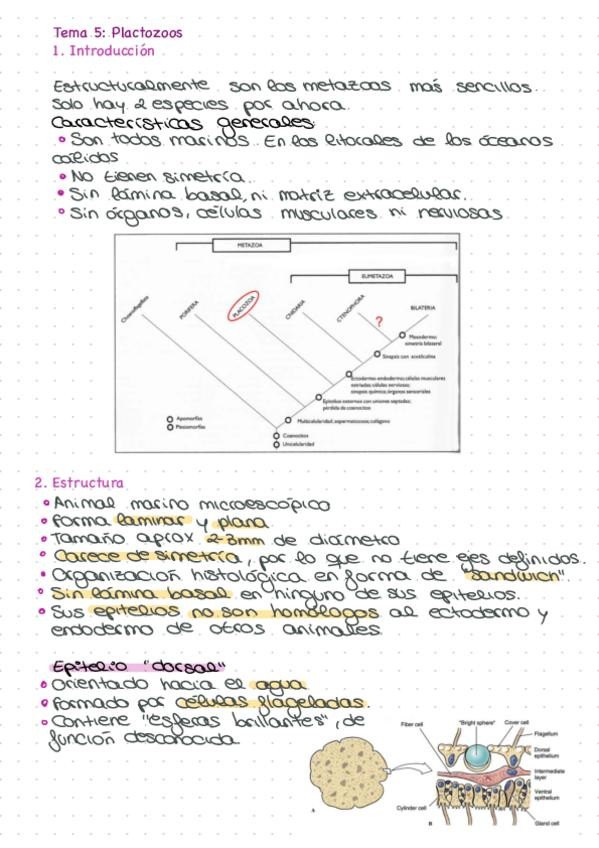 Tema 5: Plactozoos
1. Introducción
Estructuralmente son los metazoos más sencillos.
Solo hay 2 especies por ahora.
Características generales:
• Son todos marinos. En los litorales de los océanos
cálidos
• No tienen simetría.
• Sin lámina basal, ni matriz extracelular.
• Sin órganos, células musculares ni nerviosas
METAZOA
EUMETAZOA
Choanoflagellata
PORIFERA
PLACOZOA
CNIDARIA
CTENOPHORA
?
BILATERIA
Mesodermo;
simetría bilateral
Sinapsis con acetilcolina
Ectodermo-endodermo; células musculares
estriadas; células nerviosas;
sinapsis química; órganos sensoriales
Epitelios externos con uniones septadas;
pérdida de coanocitos
Multicelularidad; espermatozoos; colágeno
Apomorfías
Plesiomorfías
Coanocitos
Unicelularidad
2. Estructura
• Animal marino microescópico
• Forma laminar y plana.
• Tamaño aprox. 2-3mm de diámetro
• Carece de simetría, por lo que no tiene ejes definidos.
• Organización histológica en forma de "sandwich".
• Sin lámina basal en ninguno de sus epitelios.
• Sus epitelios no son homólogos al ectodermo y
endodermo de otros animales.
Epitelio "dorsal"
• Orientado hacia el agua
• Formado por células flageladas.
• Contiene "esferas brillantes", de
función desconocida.
Fiber cell
"Bright sphere"
Cover cell
Flagellum
Dorsal
epithelium
Intermediate
layer
Ventral
epithelium
Cylinder cell
Gland cell
A
B